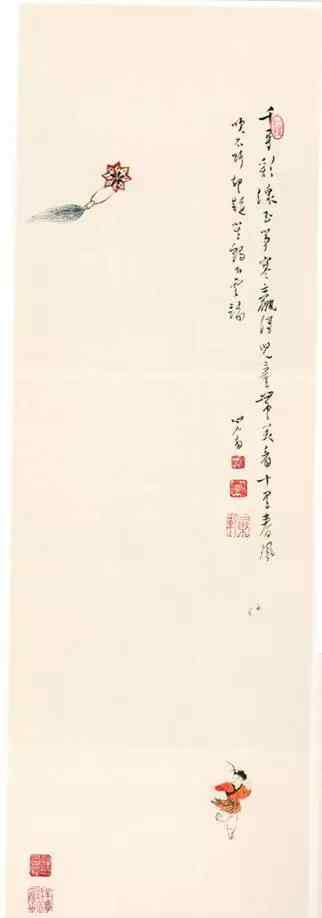 千尋彩線玉箏寒贏得兒童帶笑看十里春風
吹不斷却疑笙鶴下雲端
心畬